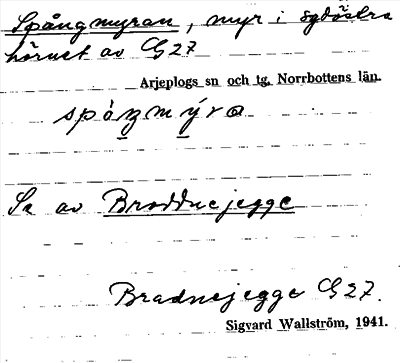 Spångmyran, myr i sydöstra
hörnet av G27
Arjeplogs sn och tg. Norrbottens län.
spåŋmy̍ra
Sa av Broddnejegge
Bradnejegge G27.
Sigvard Wallström, 1941.